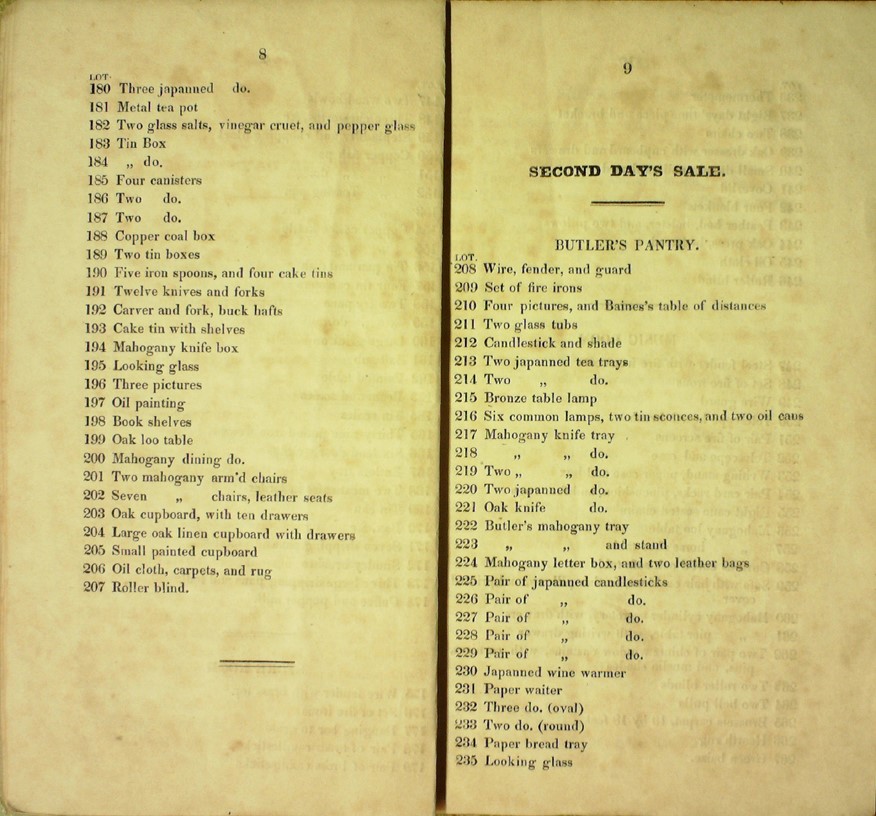 8
LOT.
180 Three japanned do.
181 Metal tea pot
182 Two glass salts, vinegar cruet, and pepper glass
183 Tin Box
184 „ do.
185 Four canisters
186 Two do.
187 Two do.
188 Copper coal box
189 Two tin boxes
190 Five iron spoons, and four cake tins
191 Twelve knives and forks
192 Carver and fork, buck hafts
193 Cake tin with shelves
194 Mahogany knife box
195 Looking glass
196 Three pictures
197 Oil painting
198 Book shelves
199 Oak loo table
200 Mahogany dining do.
201 Two mahogany arm'd chairs
202 Seven „ chairs, leather seats
203 Oak cupboard, with ten drawers
204 Large oak linen cupboard with drawers
205 Small painted cupboard
206 Oil cloth, carpets, and rug
207 Roller blind.
9
SECOND DAY'S SALE.
BUTLER'S PANTRY.
LOT.
208 Wire, fender, and guard
209 Set of fire irons
210 Four pictures, and Baines's table of distances
211 Two glass tubs
212 Candlestick and shade
213 Two japanned tea trays
214 Two „ do.
215 Bronze table lamp
216 Six common lamps, two tin sconces, and two oil cans
217 Mahogany knife tray
218 „ „ do.
219 Two „ „ do.
220 Two japanned do.
221 Oak knife do.
222 Butler's mahogany tray
223 „ „ and stand
224 Mahogany letter box, and two leather bags
225 Pair of japanned candlesticks
226 Pair of „ do.
227 Pair of „ do.
228 Pair of „ do.
229 Pair of „ do.
230 Japanned wine warmer
231 Paper waiter
232 Three do. (oval)
233 Two do. (round)
234 Paper bread tray
235 Looking glass